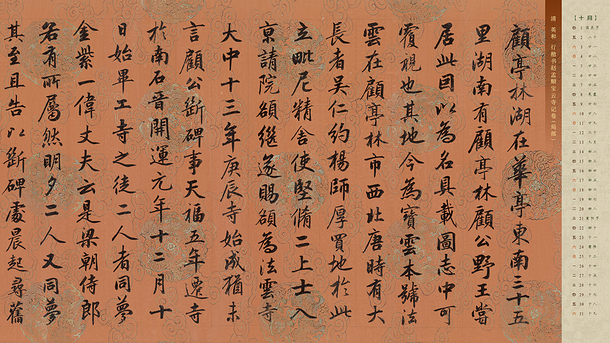 【十月】
清 英和 行楷书赵孟頫宝云寺记卷（局部）
顧亭林湖在華亭東南三十五
里湖南有顧亭林顧公野王嘗
居此因以為名具載圖志中可
覆視也其地今為寶雲本號法
雲在顧亭林市西北唐時有大
長者吴仁約楊師厚買地於此
立毗尼精舍使堅脩二上士入
京請院額繼遂賜額為法雲寺
大中十三年庚辰寺始成猶未
言顧公斷碑事天福五年遷寺
於南石晉開運元年十二月十
日始畢工寺之徒二人者同夢
金紫一偉丈夫云是梁朝侍郎
若有所屬然明夕二人又同夢
其至且告以斷碑處晨起尋舊